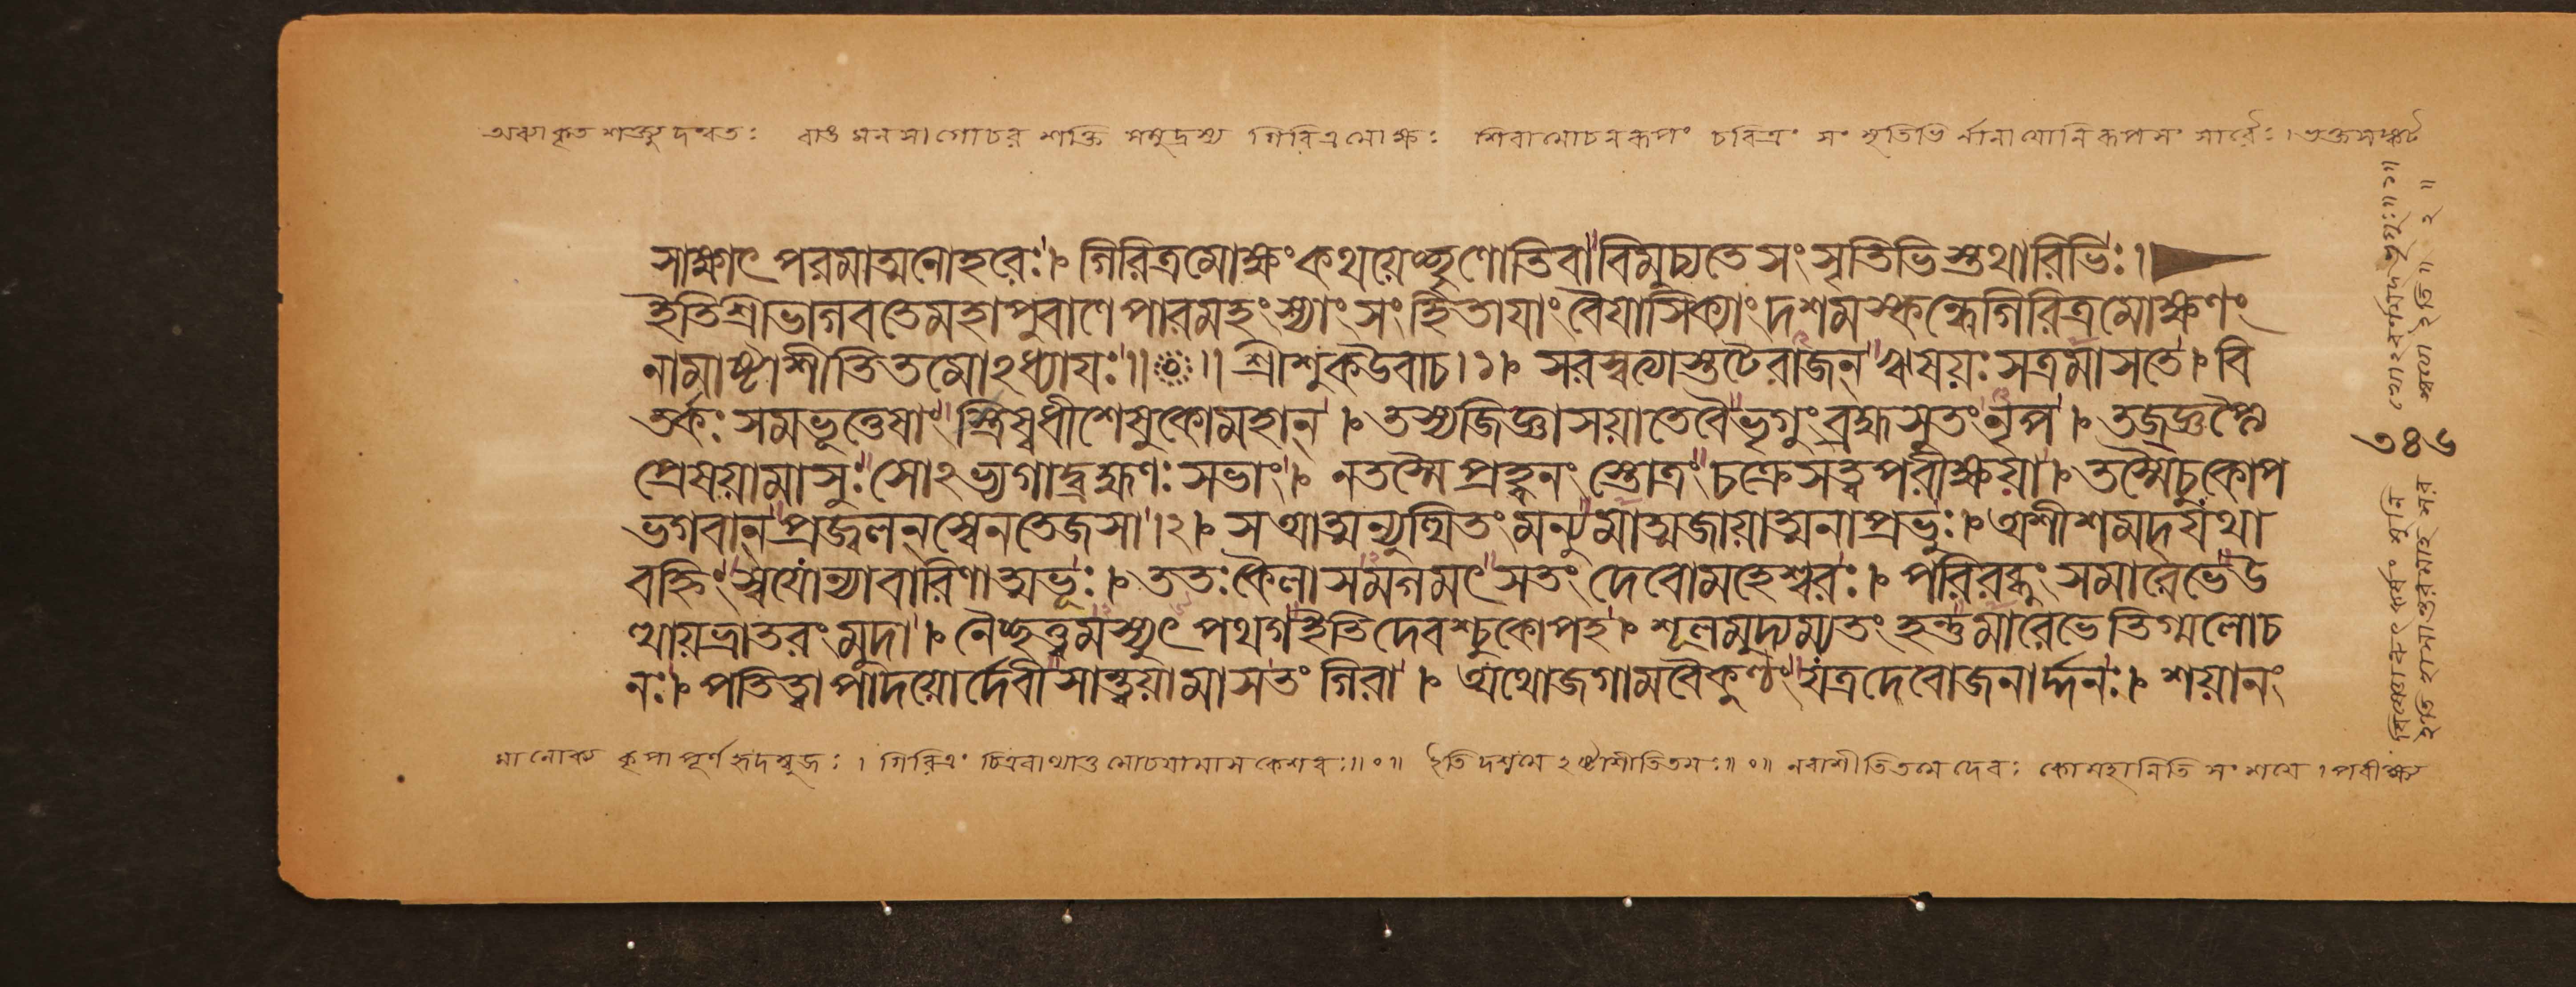 অব্যাকৃত শক্ত্যুদন্বতঃ বাঙমনসাগোচর শক্তি সমুদ্রস্য গিরিত্র মোক্ষঃ শিবামোচনরূপং চরিত্রং সংসৃতিভির্নানাযোনিরূপসংসারৈঃ। ভক্তসঙ্কট
সাক্ষাৎ পরমাত্মনোহরেঃ। গিরিত্রমোক্ষং কথয়েচ্ছৃণোতিবা বিমুচ্যতে সংসৃতিভিস্তথারিভিঃ।
ইতিশ্রীভাগবতেমহাপুরাণে পারমহংস্যাং সংহিতাযাং বৈযাসিক্যাং দশমস্কন্ধেগিরিত্রমোক্ষণং
নামাষ্টাশীতিতমোঽধ্যাযঃ॥ ॥ শ্রীশুকউবাচ।১। সরস্বত্যাস্তটেরাজন্ ঋষয়ঃ সত্রমাসতে। বি
তর্কঃ সমভূত্তেষাং ত্রিষ্বধীশেষুকোমহান্। তস্যজিজ্ঞাসয়াতেবৈভৃগুং ব্রহ্মসুতং নৃপ। তজ্জ্ঞপ্ত্যৈ
প্রেষয়ামাসুঃ সোঽভ্যগাদ্ব্রহ্মণঃ সভাং। নতস্মৈ প্রহ্বনং স্তোত্রং চক্রেসত্ত্বপরীক্ষয়া। তস্মৈচুকোপ
ভগবান্ প্রজ্বলন্ স্বেনতেজসা।২। সআত্মন্যুত্থিতং মন্যুমাত্মজায়াত্মনাপ্রভুঃ। অশীশমদ্যথা
বহ্নিং স্বযোন্যাবারিণাত্মভূঃ। ততঃ কৈলাসমগমৎ সতং দেবোমহেশ্বরঃ। পরিরব্ধুং সমারেভেউ
ত্থায়ভ্রাতরং মুদা। নৈচ্ছত্ত্বমস্যুৎপথগইতিদেবশ্চুকোপহ। শূলমুদ্যম্যতং হন্তুমারেভে তিগ্মলোচ
নঃ। পতিত্বা পাদয়োর্দেবী সান্ত্বয়ামাসতং গিরা। অথোজগামবৈকুণ্ঠং যত্রদেবোজনার্দ্দনঃ। শয়ানং
মালোক্য কৃপাপূর্ণহৃদম্বুজঃ। গিরিত্রং চিত্রবাথাশু মোচযামাসকেশবঃ॥০॥ ইতি দশমেঽষ্টাশীতিতমঃ॥০॥ নবাশীতিতমে দেবঃ কোমহানিতি সংশয়ে। পরীক্ষ্য
৩৪৬